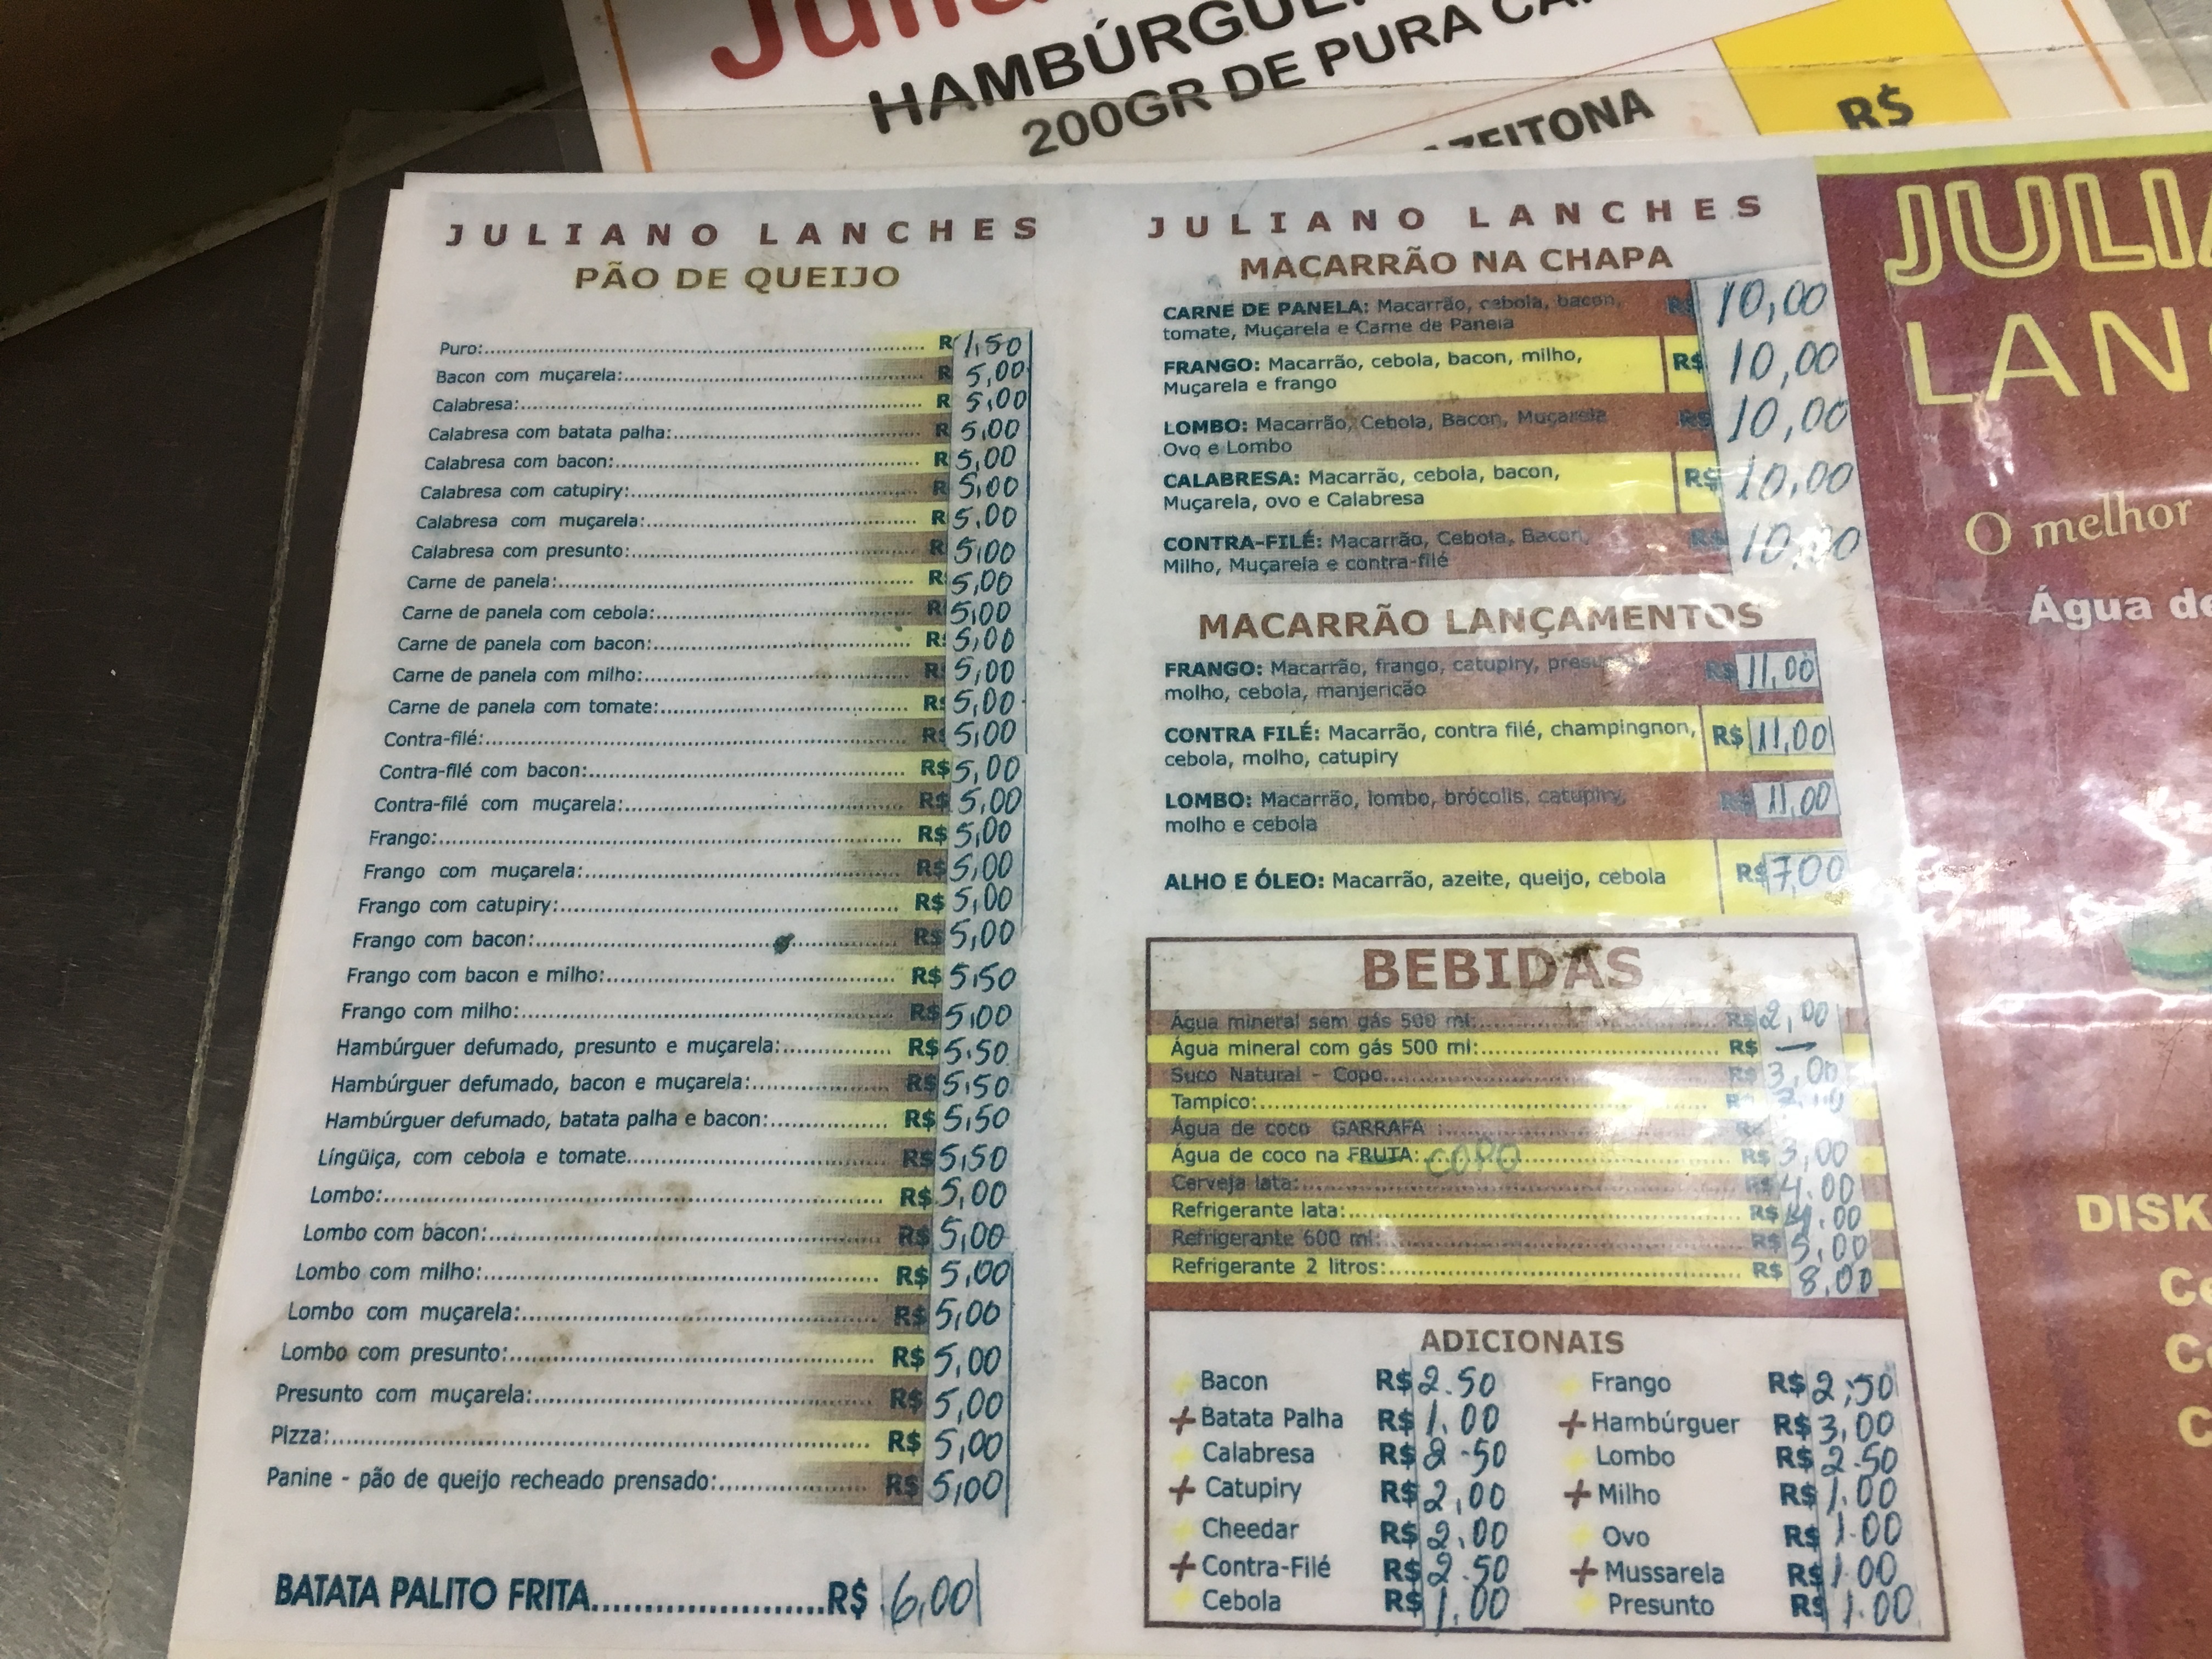 JULIANO LANCHES
PÃO DE QUEIJO
Puro:........ R 1,50
Bacon com muçarela:........ R 5,00
Calabresa:........ R 5,00
Calabresa com batata palha:........ R 5,00
Calabresa com bacon:........ R 5,00
Calabresa com catupiry:........ R 5,00
Calabresa com muçarela:........ R 5,00
Calabresa com presunto:........ R 5,00
Carne de panela:........ R 5,00
Carne de panela com cebola:........ R 5,00
Carne de panela com bacon:........ R 5,00
Carne de panela com milho:........ R 5,00
Carne de panela com tomate:........ R$ 5,00
Contra-filé:........ R$ 5,00
Contra-filé com bacon:........ R$ 5,00
Contra-filé com muçarela:........ R$ 5,00
Frango:........ R$ 5,00
Frango com muçarela:........ R$ 5,00
Frango com catupiry:........ R$ 5,00
Frango com bacon:........ R$ 5,00
Frango com bacon e milho:........ R$ 5,50
Frango com milho:........ R$ 5,00
Hambúrguer defumado, presunto e muçarela:........ R$ 5,50
Hambúrguer defumado, bacon e muçarela:........ R$ 5,50
Hambúrguer defumado, batata palha e bacon:........ R$ 5,50
Língüiça, com cebola e tomate........ R$ 5,50
Lombo:........ R$ 5,00
Lombo com bacon:........ R$ 5,00
Lombo com milho:........ R$ 5,00
Lombo com muçarela:........ R$ 5,00
Lombo com presunto:........ R$ 5,00
Presunto com muçarela:........ R$ 5,00
Pizza:........ R$ 5,00
Panine - pão de queijo recheado prensado:........ R$ 5,00
BATATA PALITO FRITA........R$ 6,00
JULIANO LANCHES
MACARRÃO NA CHAPA
CARNE DE PANELA: Macarrão, cebola, bacon,
tomate, Muçarela e Carne de Panela R$ 10,00
FRANGO: Macarrão, cebola, bacon, milho,
Muçarela e frango R$ 10,00
LOMBO: Macarrão, Cebola, Bacon, Muçarela
Ovo e Lombo R$ 10,00
CALABRESA: Macarrão, cebola, bacon,
Muçarela, ovo e Calabresa R$ 10,00
CONTRA-FILÉ: Macarrão, Cebola, Bacon,
Milho, Muçarela e contra-filé R$ 10,00
MACARRÃO LANÇAMENTOS
FRANGO: Macarrão, frango, catupiry,
molho, cebola, manjericão R$ 11,00
CONTRA FILÉ: Macarrão, contra filé, champingnon,
cebola, molho, catupiry R$ 11,00
LOMBO: Macarrão, lombo, brócolis, catupiry,
molho e cebola R$ 11,00
ALHO E ÓLEO: Macarrão, azeite, queijo, cebola R$ 7,00
BEBIDAS
Água mineral sem gás 500 ml:........ R$ 2,00
Água mineral com gás 500 ml:........ R$
Suco Natural - Copo........ R$ 3,00
Tampico:........
Água de coco GARRAFA:........
Água de coco na FRUTA: COPO........ R$ 3,00
Cerveja lata:........ R$ 4,00
Refrigerante lata:........ R$ 4,00
Refrigerante 600 ml:........ R$ 5,00
Refrigerante 2 litros:........ R$ 8,00
ADICIONAIS
+ Bacon R$ 2.50
+ Batata Palha R$ 1,00
+ Calabresa R$ 2.50
+ Catupiry R$ 2,00
+ Cheedar R$ 2,00
+ Contra-Filé R$ 2.50
+ Cebola R$ 1,00
+ Frango R$ 2,50
+ Hambúrguer R$ 3,00
+ Lombo R$ 2.50
+ Milho R$ 1.00
+ Ovo R$ 1.00
+ Mussarela R$ 1.00
+ Presunto R$ 1.00
JULIA
LAN
O melhor
Água de
DISK
HAMBÚRGUE
200GR DE PURA CA
ZEITONA
R$